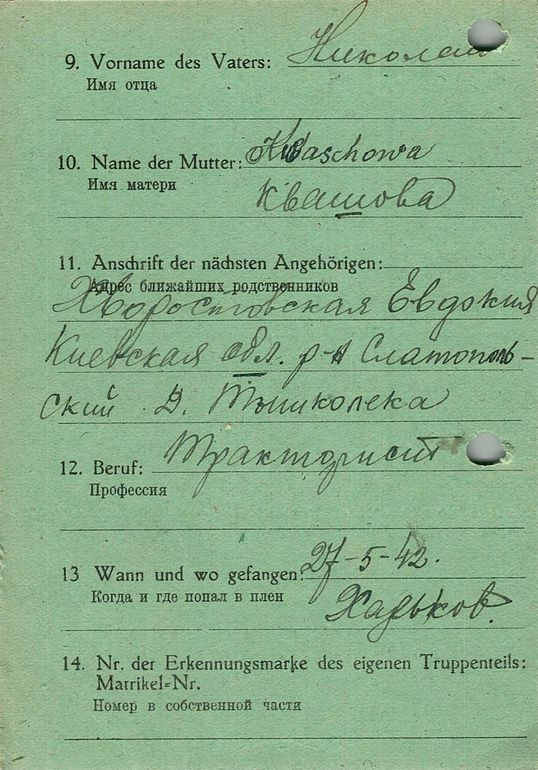 9. Vorname des Vaters: Николай
Имя отца
10. Name der Mutter: Kwaschowa
Имя матери Квашова
11. Anschrift der nächsten Angehörigen:
Адрес ближайших родственников
Хворостовская Евдокия
Киевская обл. р-н Слатополь-
ский д.
12. Beruf: Тракторист
Профессия
13 Wann und wo gefangen: 27-5-42.
Когда и где попал в плен Харьков.
14. Nr. der Erkennungsmarke des eigenen Truppenteils:
Matrikel-Nr.
Номер в собственной части